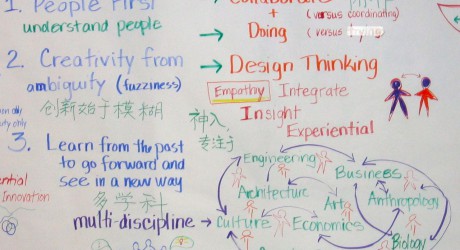 1. People First
understand people
2. Creativity from
ambiguity (fuzziness)
创新始于模糊
3. Learn from the past
to go forward and
see in a new way
多学科
multi-discipline → Culture
Innovation
+ (versus coordinating)
→ Doing (versus
→ Design Thinking
Empathy Integrate
Insight
Experiential
神入
专注于
Engineering
Business
Architecture
Art
Anthropology
Economics
Biology